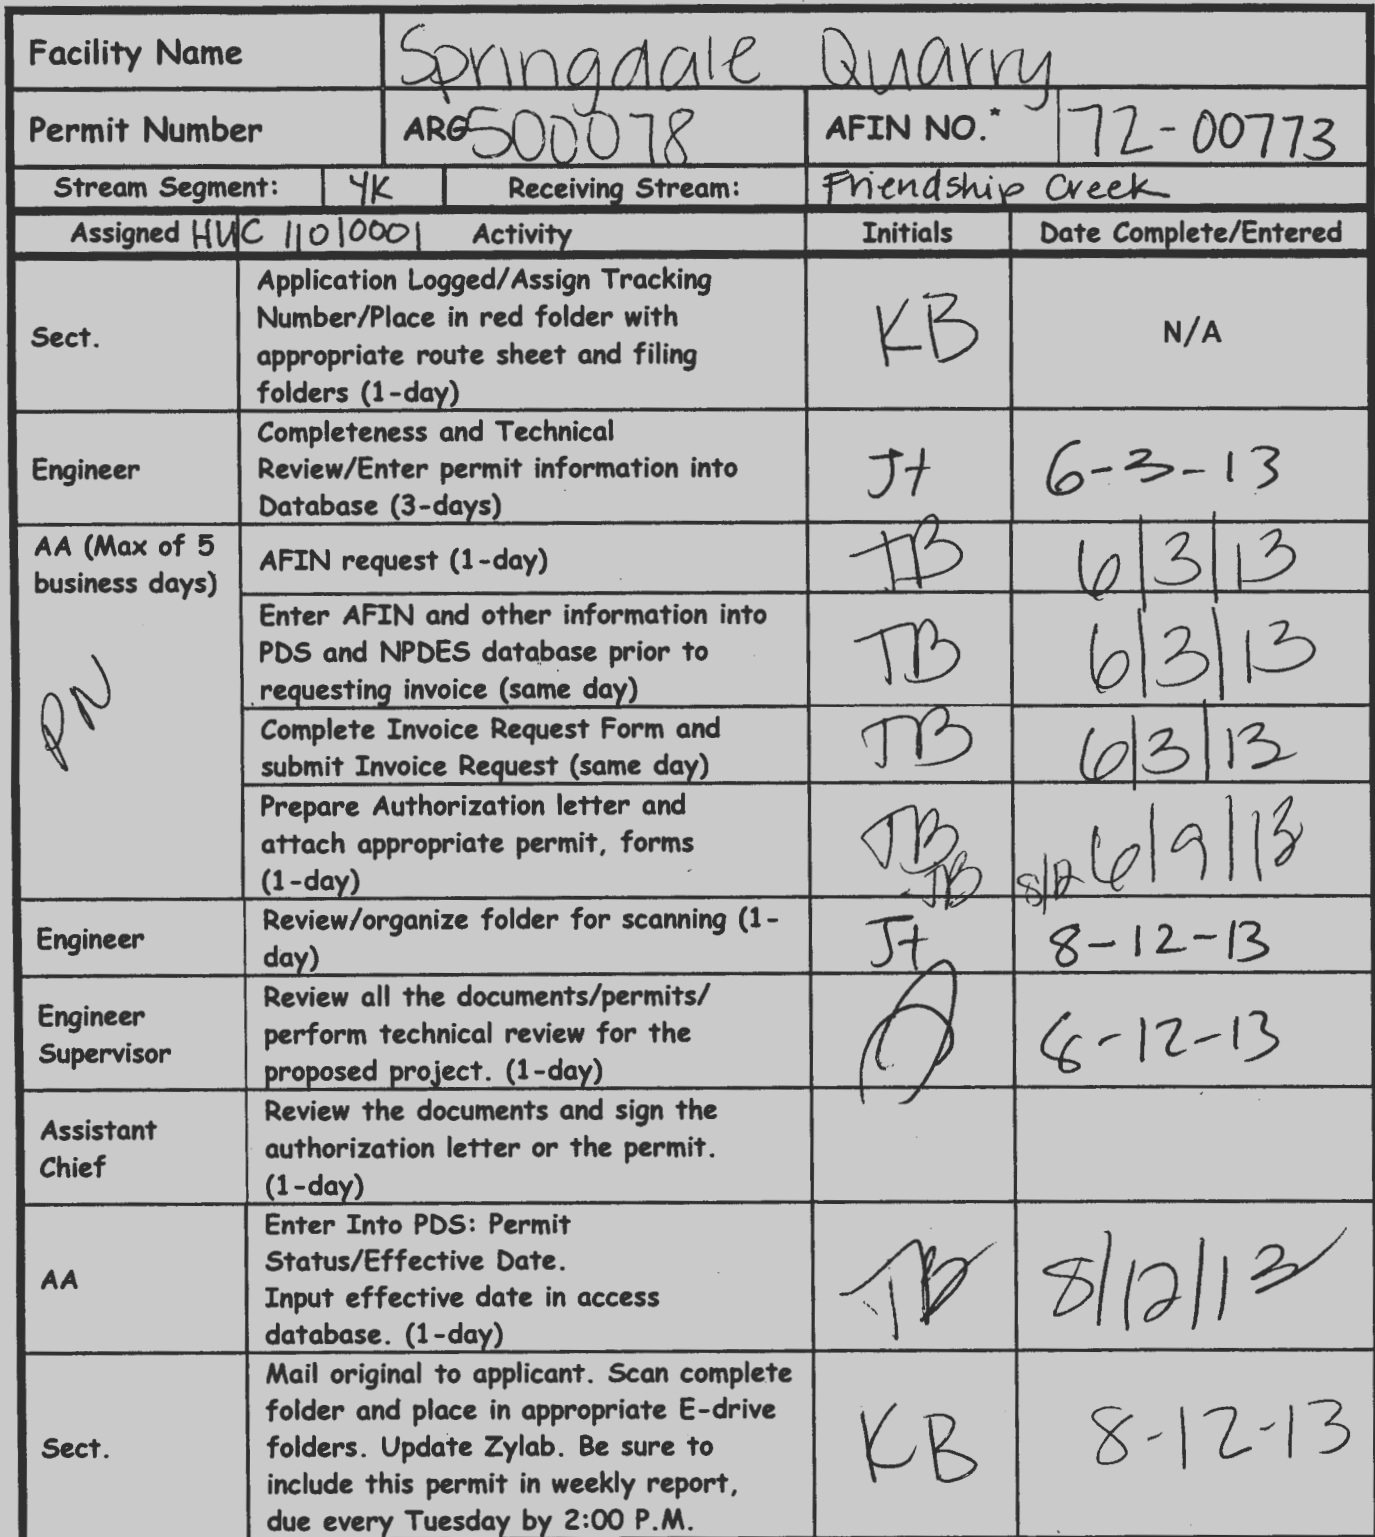 Facility Name Springdale Quarry
Permit Number ARG500078 AFIN NO.* 72-00773
Stream Segment: 4K Receiving Stream: Friendship Creek
Assigned HUC 11010001 Activity Initials Date Complete/Entered
Application Logged/Assign Tracking
Number/Place in red folder with
Sect. KB N/A
appropriate route sheet and filing
folders (1-day)
Completeness and Technical
Engineer Review/Enter permit information into Jt 6-3-13
Database (3-days)
AA (Max of 5
business days)
PN
AFIN request (1-day) TB 6/3/13
Enter AFIN and other information into
PDS and NPDES database prior to TB 6/3/13
requesting invoice (same day)
Complete Invoice Request Form and
submit Invoice Request (same day) TB 6/3/13
Prepare Authorization letter and
attach appropriate permit, forms TB 6/9/13
(1-day) TB 8/12
Engineer Review/organize folder for scanning (1-
day) Jt 8-12-13
Review all the documents/permits/
Engineer perform technical review for the 8-12-13
Supervisor proposed project. (1-day)
Review the documents and sign the
Assistant authorization letter or the permit.
Chief (1-day)
Enter Into PDS: Permit
Status/Effective Date.
AA TB 8/12/13
Input effective date in access
database. (1-day)
Mail original to applicant. Scan complete
folder and place in appropriate E-drive
Sect. folders. Update Zylab. Be sure to KB 8-12-13
include this permit in weekly report,
due every Tuesday by 2:00 P.M.